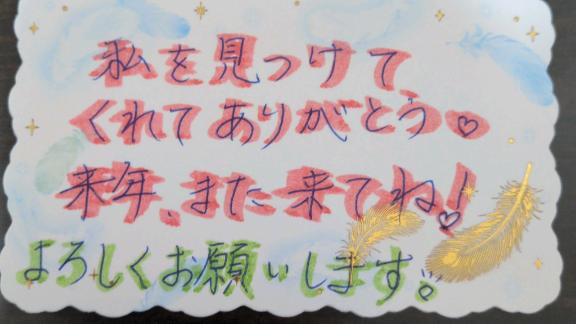 私を見つけて
くれてありがとう♡
来年、また来てね!
よろしくお願いします